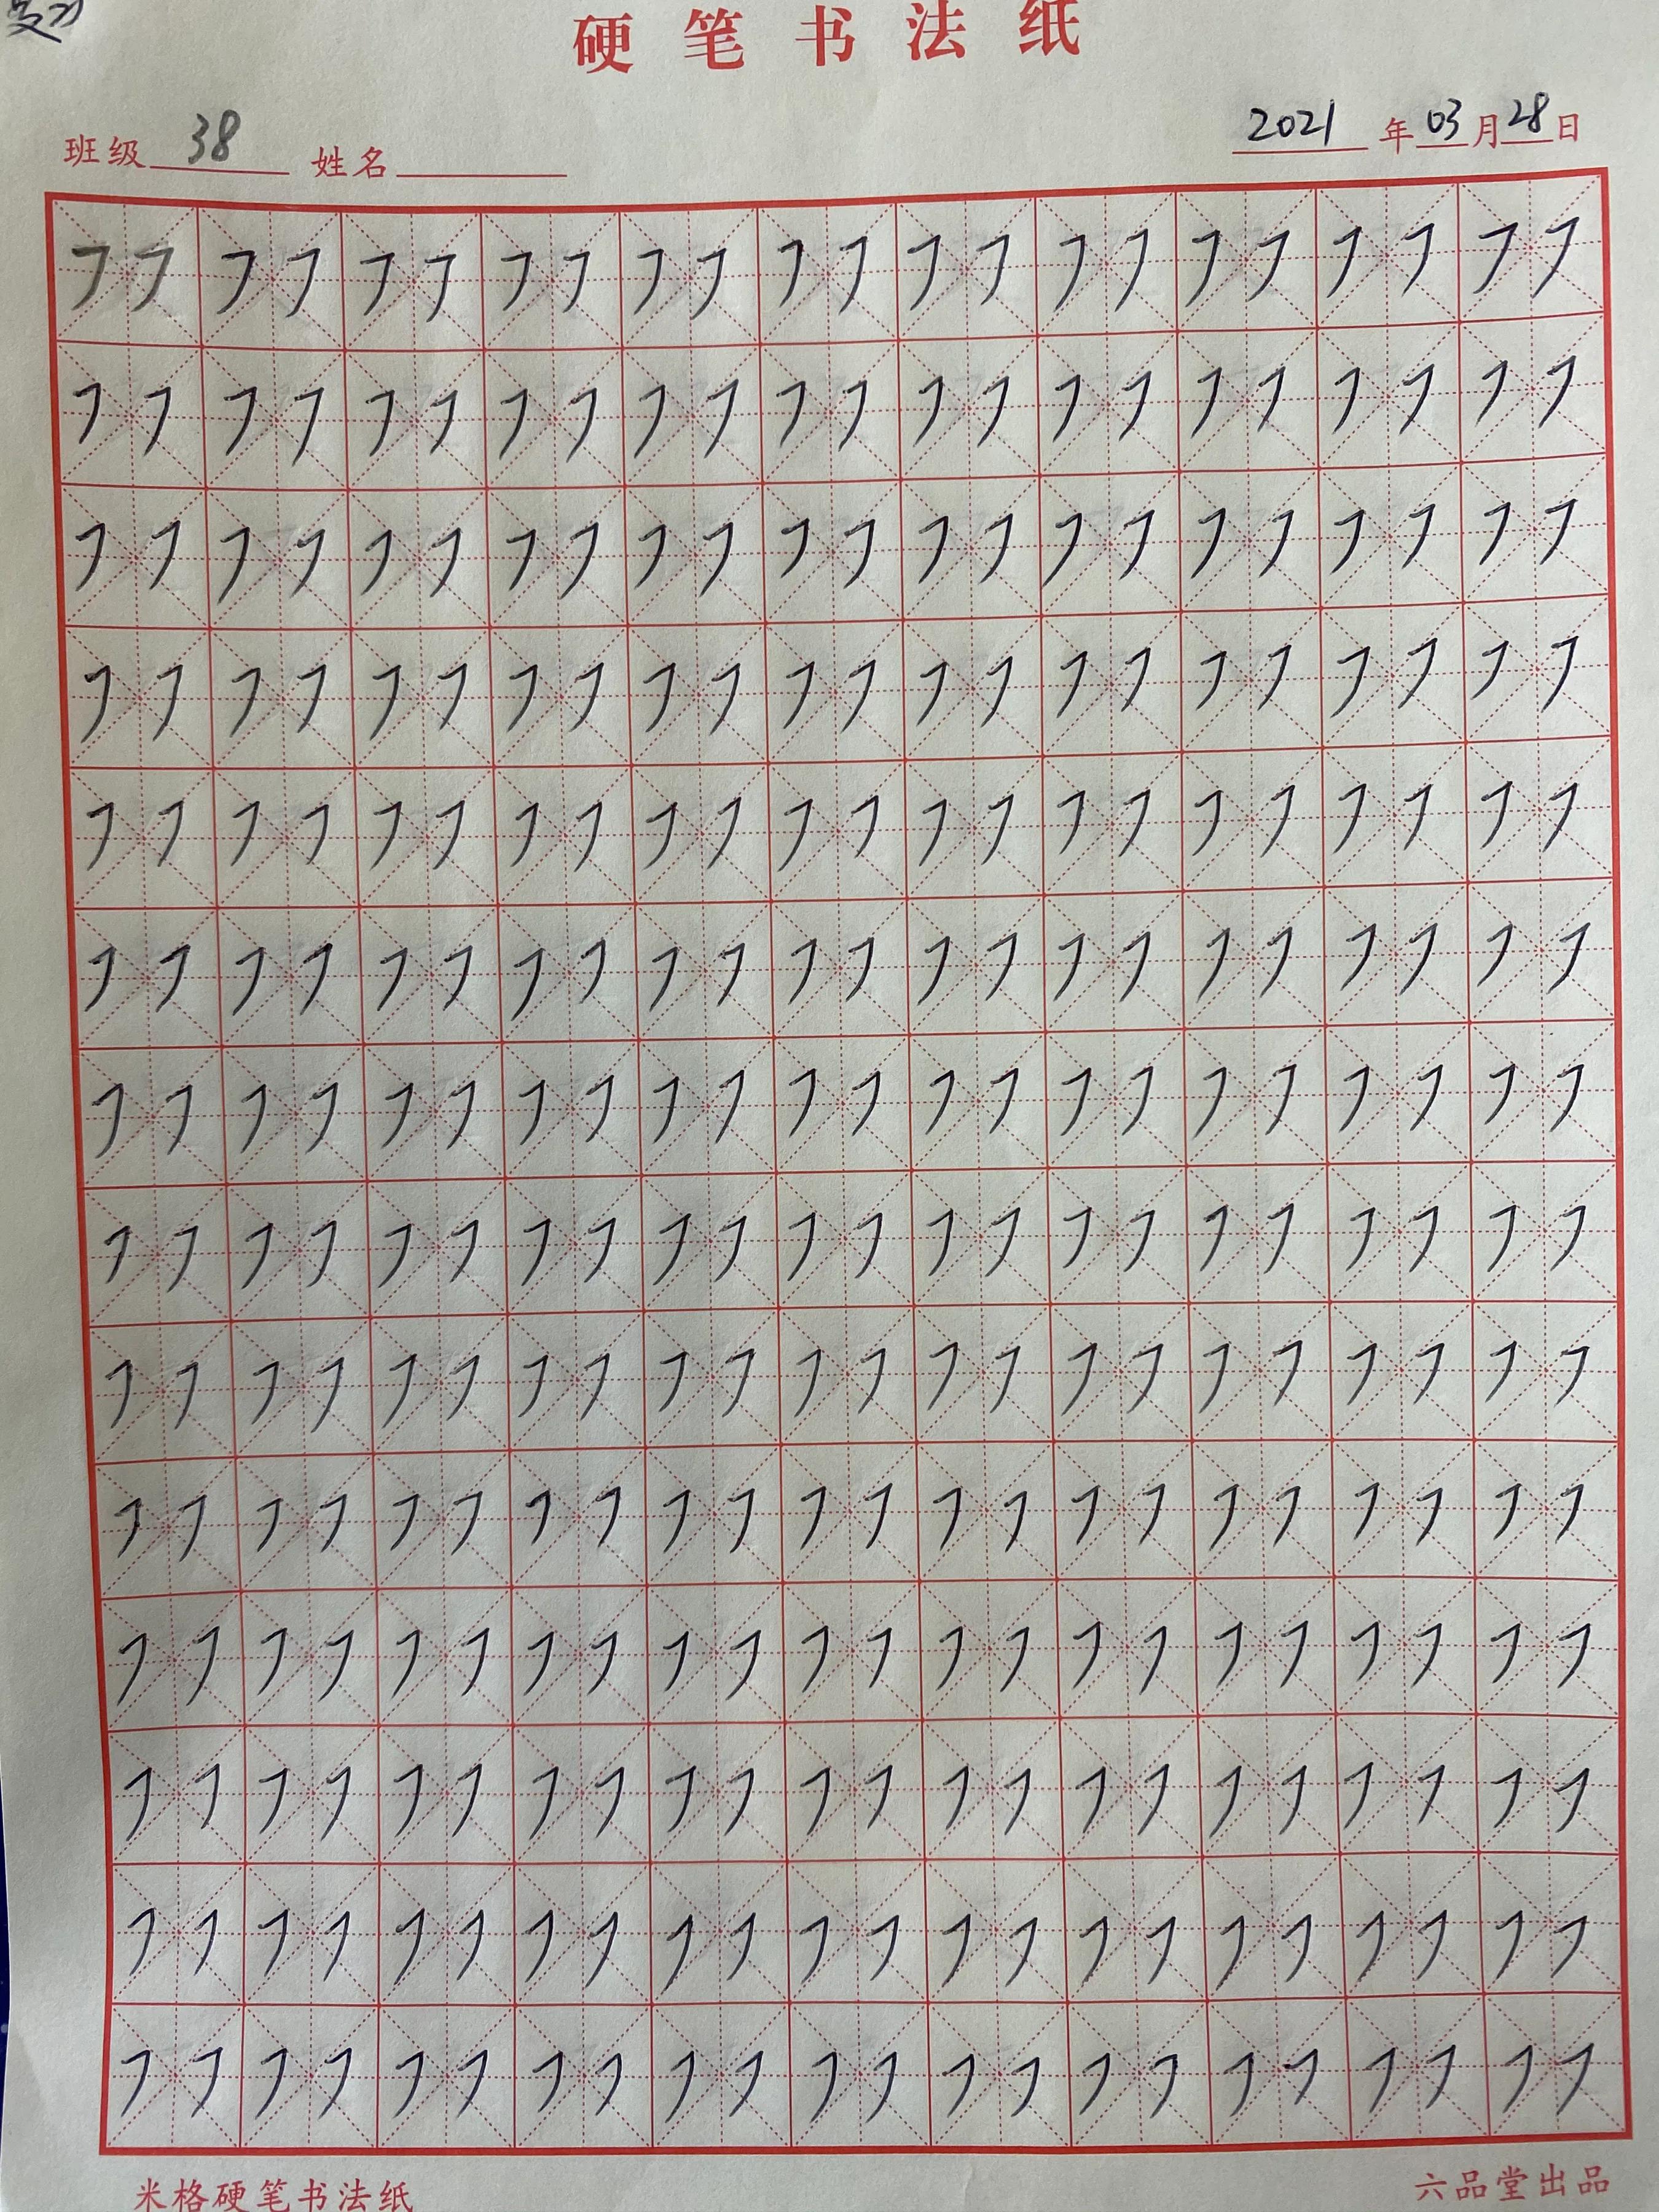 复习
硬笔书法纸
班级 38 姓名 2021 年 03 月 28 日
㇇㇇㇇㇇㇇㇇㇇㇇㇇㇇㇇㇇㇇㇇㇇㇇㇇㇇㇇㇇㇇㇇
㇇㇇㇇㇇㇇㇇㇇㇇㇇㇇㇇㇇㇇㇇㇇㇇㇇㇇㇇㇇㇇㇇
㇇㇇㇇㇇㇇㇇㇇㇇㇇㇇㇇㇇㇇㇇㇇㇇㇇㇇㇇㇇㇇㇇
㇇㇇㇇㇇㇇㇇㇇㇇㇇㇇㇇㇇㇇㇇㇇㇇㇇㇇㇇㇇㇇㇇
㇇㇇㇇㇇㇇㇇㇇㇇㇇㇇㇇㇇㇇㇇㇇㇇㇇㇇㇇㇇㇇㇇
㇇㇇㇇㇇㇇㇇㇇㇇㇇㇇㇇㇇㇇㇇㇇㇇㇇㇇㇇㇇㇇㇇
㇇㇇㇇㇇㇇㇇㇇㇇㇇㇇㇇㇇㇇㇇㇇㇇㇇㇇㇇㇇㇇㇇
㇇㇇㇇㇇㇇㇇㇇㇇㇇㇇㇇㇇㇇㇇㇇㇇㇇㇇㇇㇇㇇㇇
㇇㇇㇇㇇㇇㇇㇇㇇㇇㇇㇇㇇㇇㇇㇇㇇㇇㇇㇇㇇㇇㇇
㇇㇇㇇㇇㇇㇇㇇㇇㇇㇇㇇㇇㇇㇇㇇㇇㇇㇇㇇㇇㇇㇇
㇇㇇㇇㇇㇇㇇㇇㇇㇇㇇㇇㇇㇇㇇㇇㇇㇇㇇㇇㇇㇇㇇
㇇㇇㇇㇇㇇㇇㇇㇇㇇㇇㇇㇇㇇㇇㇇㇇㇇㇇㇇㇇㇇㇇
㇇㇇㇇㇇㇇㇇㇇㇇㇇㇇㇇㇇㇇㇇㇇㇇㇇㇇㇇㇇㇇㇇
㇇㇇㇇㇇㇇㇇㇇㇇㇇㇇㇇㇇㇇㇇㇇㇇㇇㇇㇇㇇㇇㇇
米格硬笔书法纸 六品堂出品